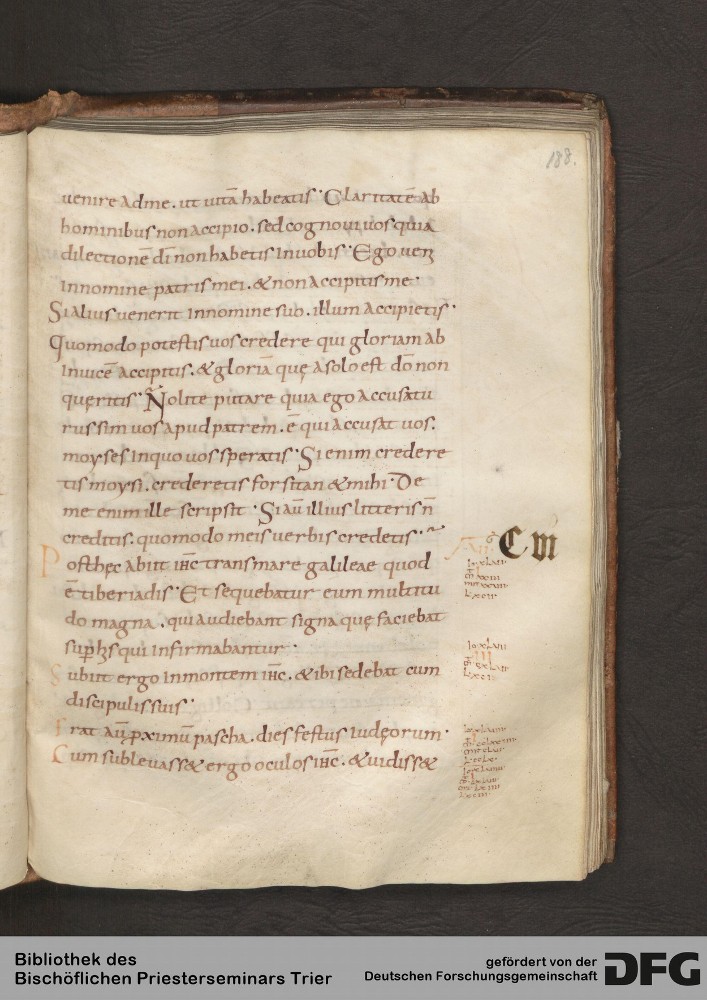 188.
uenire adme. ut uitā habeatis· Claritatē ab
hominibus non accipio. sed cognoui uos quia
dilectionē dī non habetis inuobis· Ego ueni
innomine patris mei. & non accipitis me·
Si alius uenerit innomine suo. illum accipietis·
Quomodo potestis uos credere qui gloriam ab
inuicē accipitis. & gloriā quę asolo est dō non
quęritis· Nolite putare quia ego accusatu
rus sim uos apud patrem. ē qui accusat uos.
moyses inquo uos speratis· Si enim credere
tis moysi. crederetis forsitan & mihi· De
me enim ille scripsit· Si aū illius litteris n̄
creditis. quomodo meis uerbis credetis·
Post hęc abiit ih̄c trans mare galilaeae quod
ē tiberiadis· Et sequebatur eum multitu
do magna. qui audiebant signa quę faciebat
sup his qui infirmabantur·
Subiit ergo inmontem ih̄c. & ibi sedebat cum
discipulis suis·
Erat aū proximū pascha. dies festus iudęorum·
Cum subleuass& ergo oculos ih̄c. & uidiss&
Bibliothek des
Bischöflichen Priesterseminars Trier
gefördert von der
Deutschen Forschungsgemeinschaft
DFG